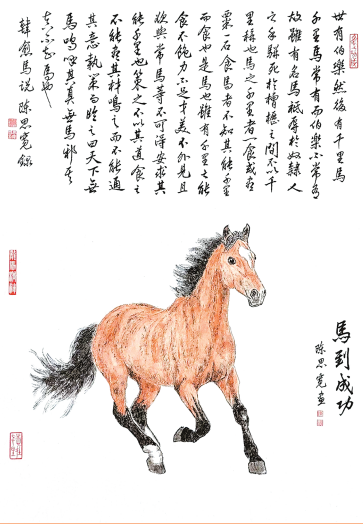 世有伯樂然後有千里馬
千里馬常有而伯樂不常有
故雖有名馬祇辱於奴隸人
之手駢死於槽櫪之間不以千
里稱也馬之千里者一食或盡
粟一石食馬者不知其能千里
而食也是馬也雖有千里之能
食不飽力不足才美不外見且
欲與常馬等不可得安求其
能千里也策之不以其道食之
不能盡其材鳴之而不能通
其意執策而臨之曰天下無
馬嗚呼其真無馬邪其
真不知馬也
韓愈馬說 陳思寬錄
馬到成功
陳思寬畫